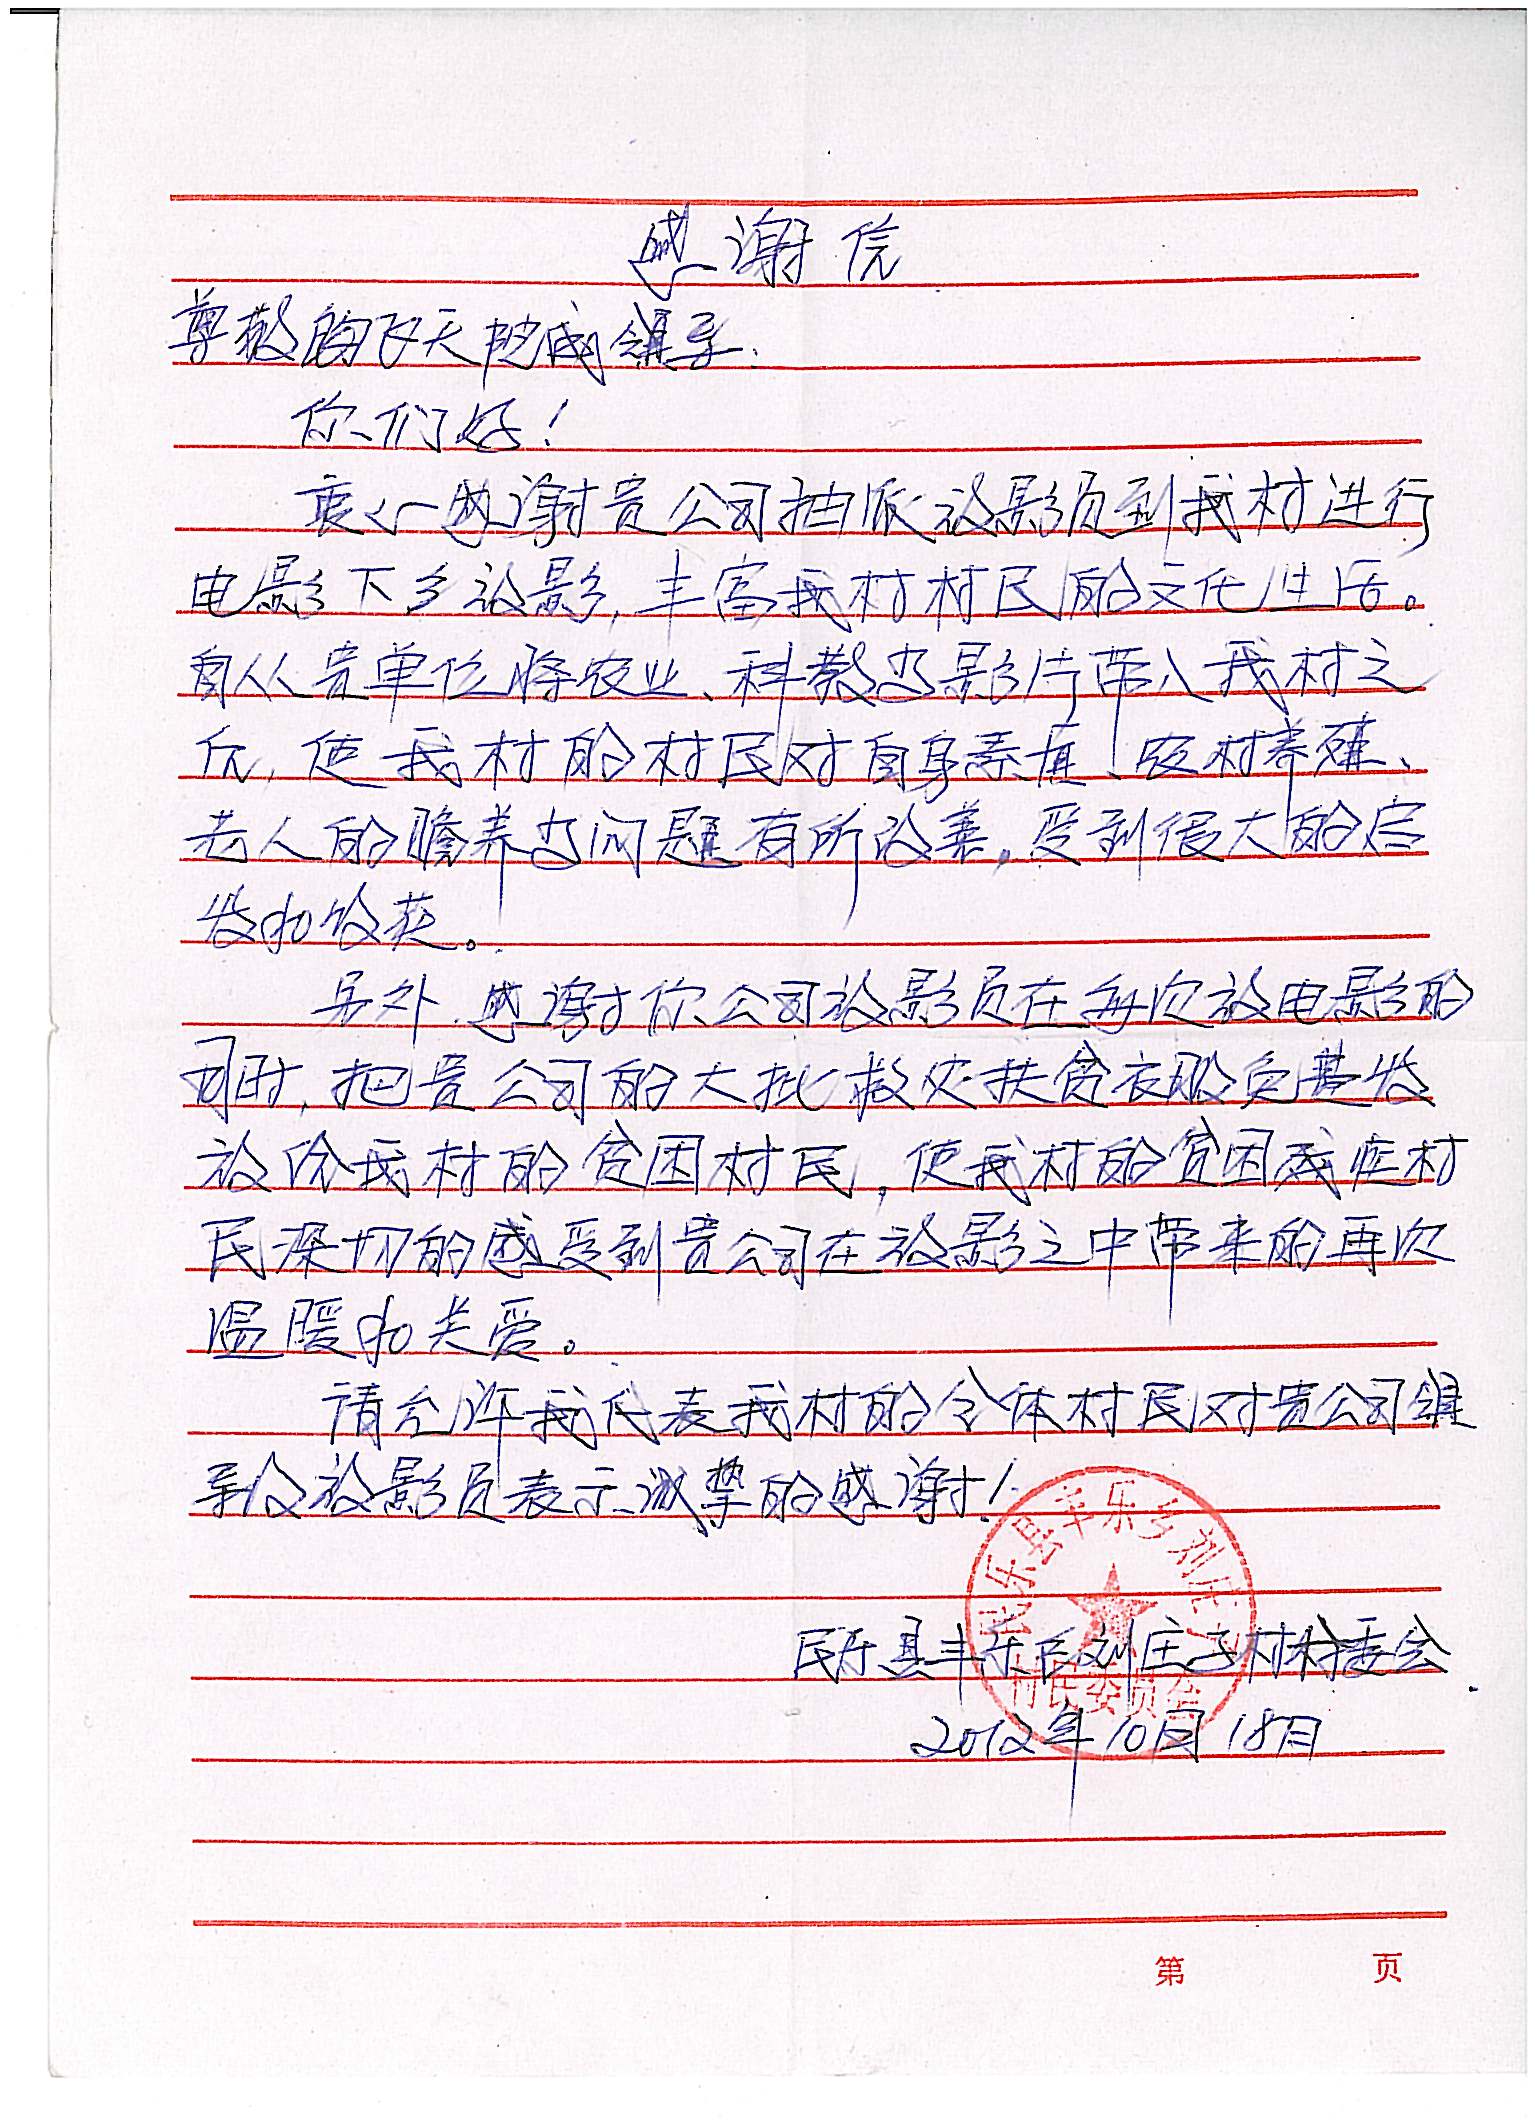 感谢信
尊敬的飞天院线领导：
你们好！
衷心感谢贵公司抽派放影员到我村进行
电影下乡放影，丰富我村村民的文化生活。
自从贵单位将农业、科教电影片带入我村之
后，使我村的村民对自身素质、农村养殖、
老人的赡养也问题有所改善，受到很大的启
发和收获。
另外，感谢你公司放影员在每次放电影的
同时，把贵公司的大批救灾扶贫衣服免费发
放给我村的贫困村民，使我村的贫困残疾村
民深切的感受到贵公司在放影之中带来的再次
温暖和关爱。
请允许我代表我村的全体村民对贵公司领
导及放影员表示诚挚的感谢！
民乐县丰乐乡刘庄
村民委员会
民乐县丰乐乡刘庄子村村委会
2012年10月18日
第 页